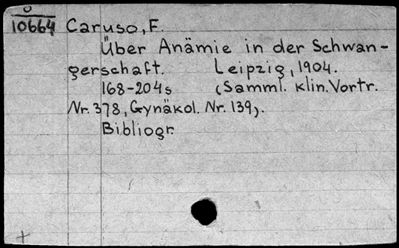 10664 Caruso, F.
Über Anämie in der Schwan-
gerschaft. Leipzig, 1904.
168-204s (Samml. klin. Vortr.
Nr. 378, Gynäkol. Nr. 139).
Bibliogr.